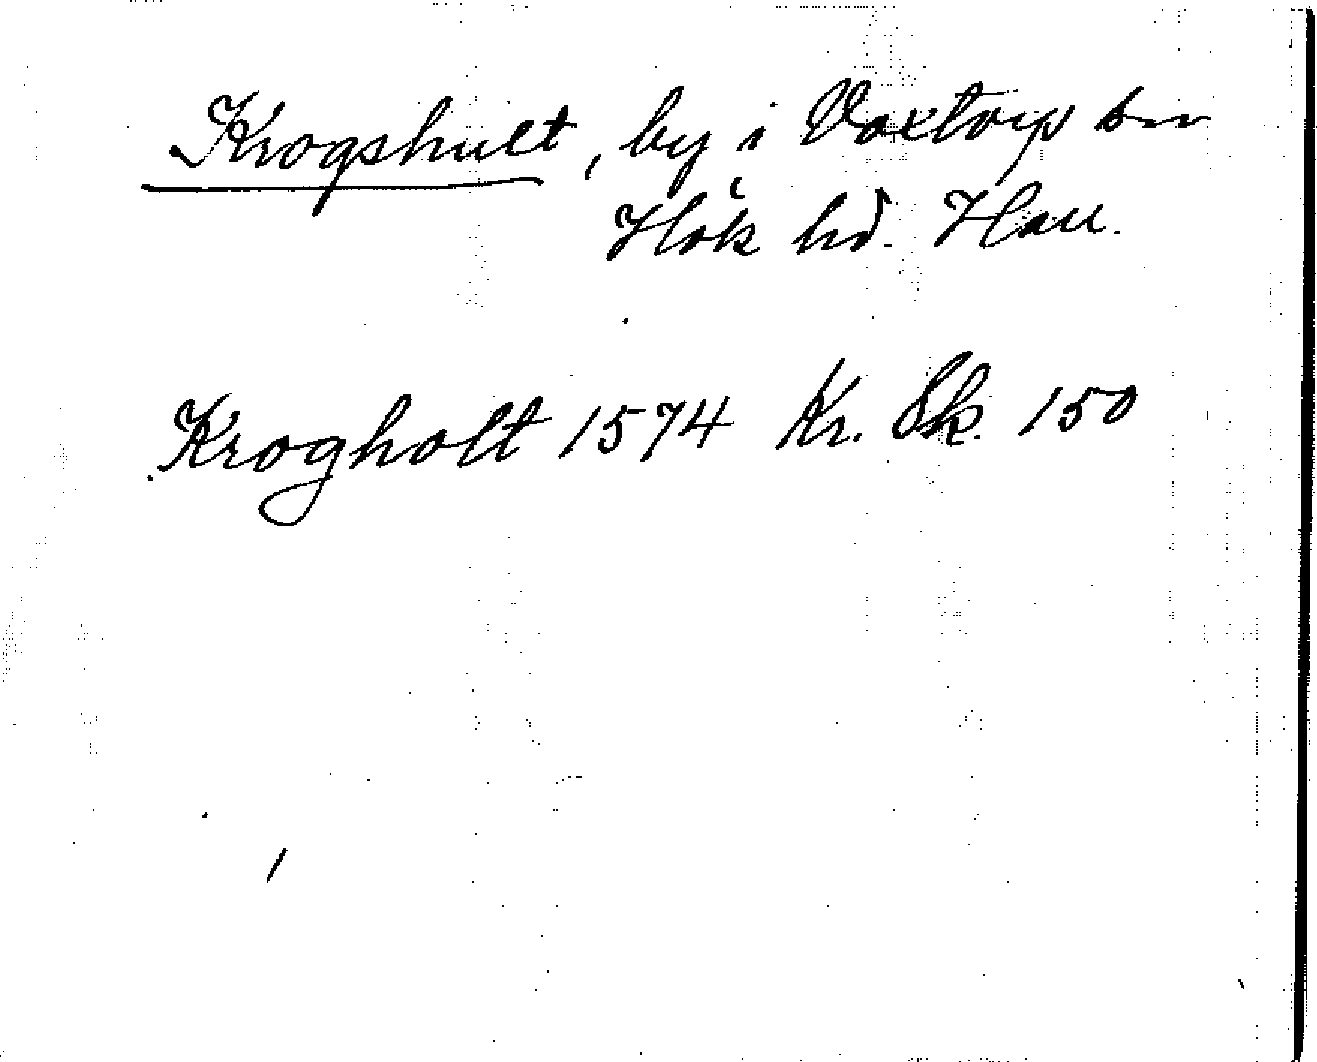 Krogshult, by i Voxtorps sn
Höks hd. Hall.
Krogholt 1574 Kr. Sk. 150